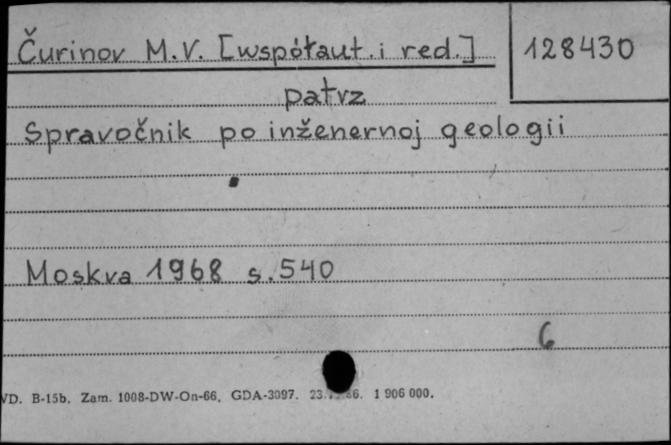 Čurinov M.V. [współaut. i red.]
128430
patrz
Spravočnik po inženernoj geologii
Moskva 1968 s. 540
6
VD. B-15b. Zam. 1008-DW-On-66. GDA-3097. 1 906 000.